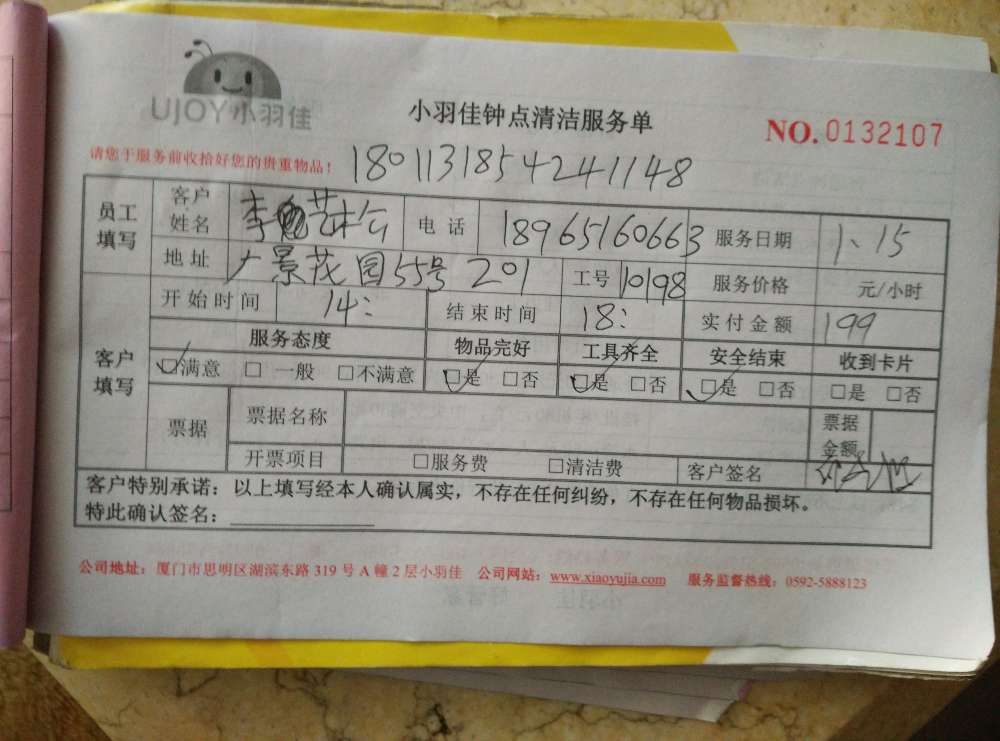 UJOY小羽佳
小羽佳钟点清洁服务单
NO.0132107
请您于服务前收拾好您的贵重物品！
18011318542241148
员工填写 客户姓名 李艺松 电话 18965160663 服务日期 1、15
地址 广景花园55号201 工号 10198 服务价格 元/小时
客户填写 开始时间 14: 结束时间 18: 实付金额 199
服务态度 物品完好 工具齐全 安全结束 收到卡片
☑满意 □一般 □不满意 ☑是 □否 ☑是 □否 ☑是 □否 □是 □否
票据 票据名称 票据金额
开票项目 □服务费 □清洁费 客户签名
客户特别承诺：以上填写经本人确认属实，不存在任何纠纷，不存在任何物品损坏。
特此确认签名：
公司地址：厦门市思明区湖滨东路319号A幢2层小羽佳 公司网站：www.xiaoyujia.com 服务监督热线：0592-5888123